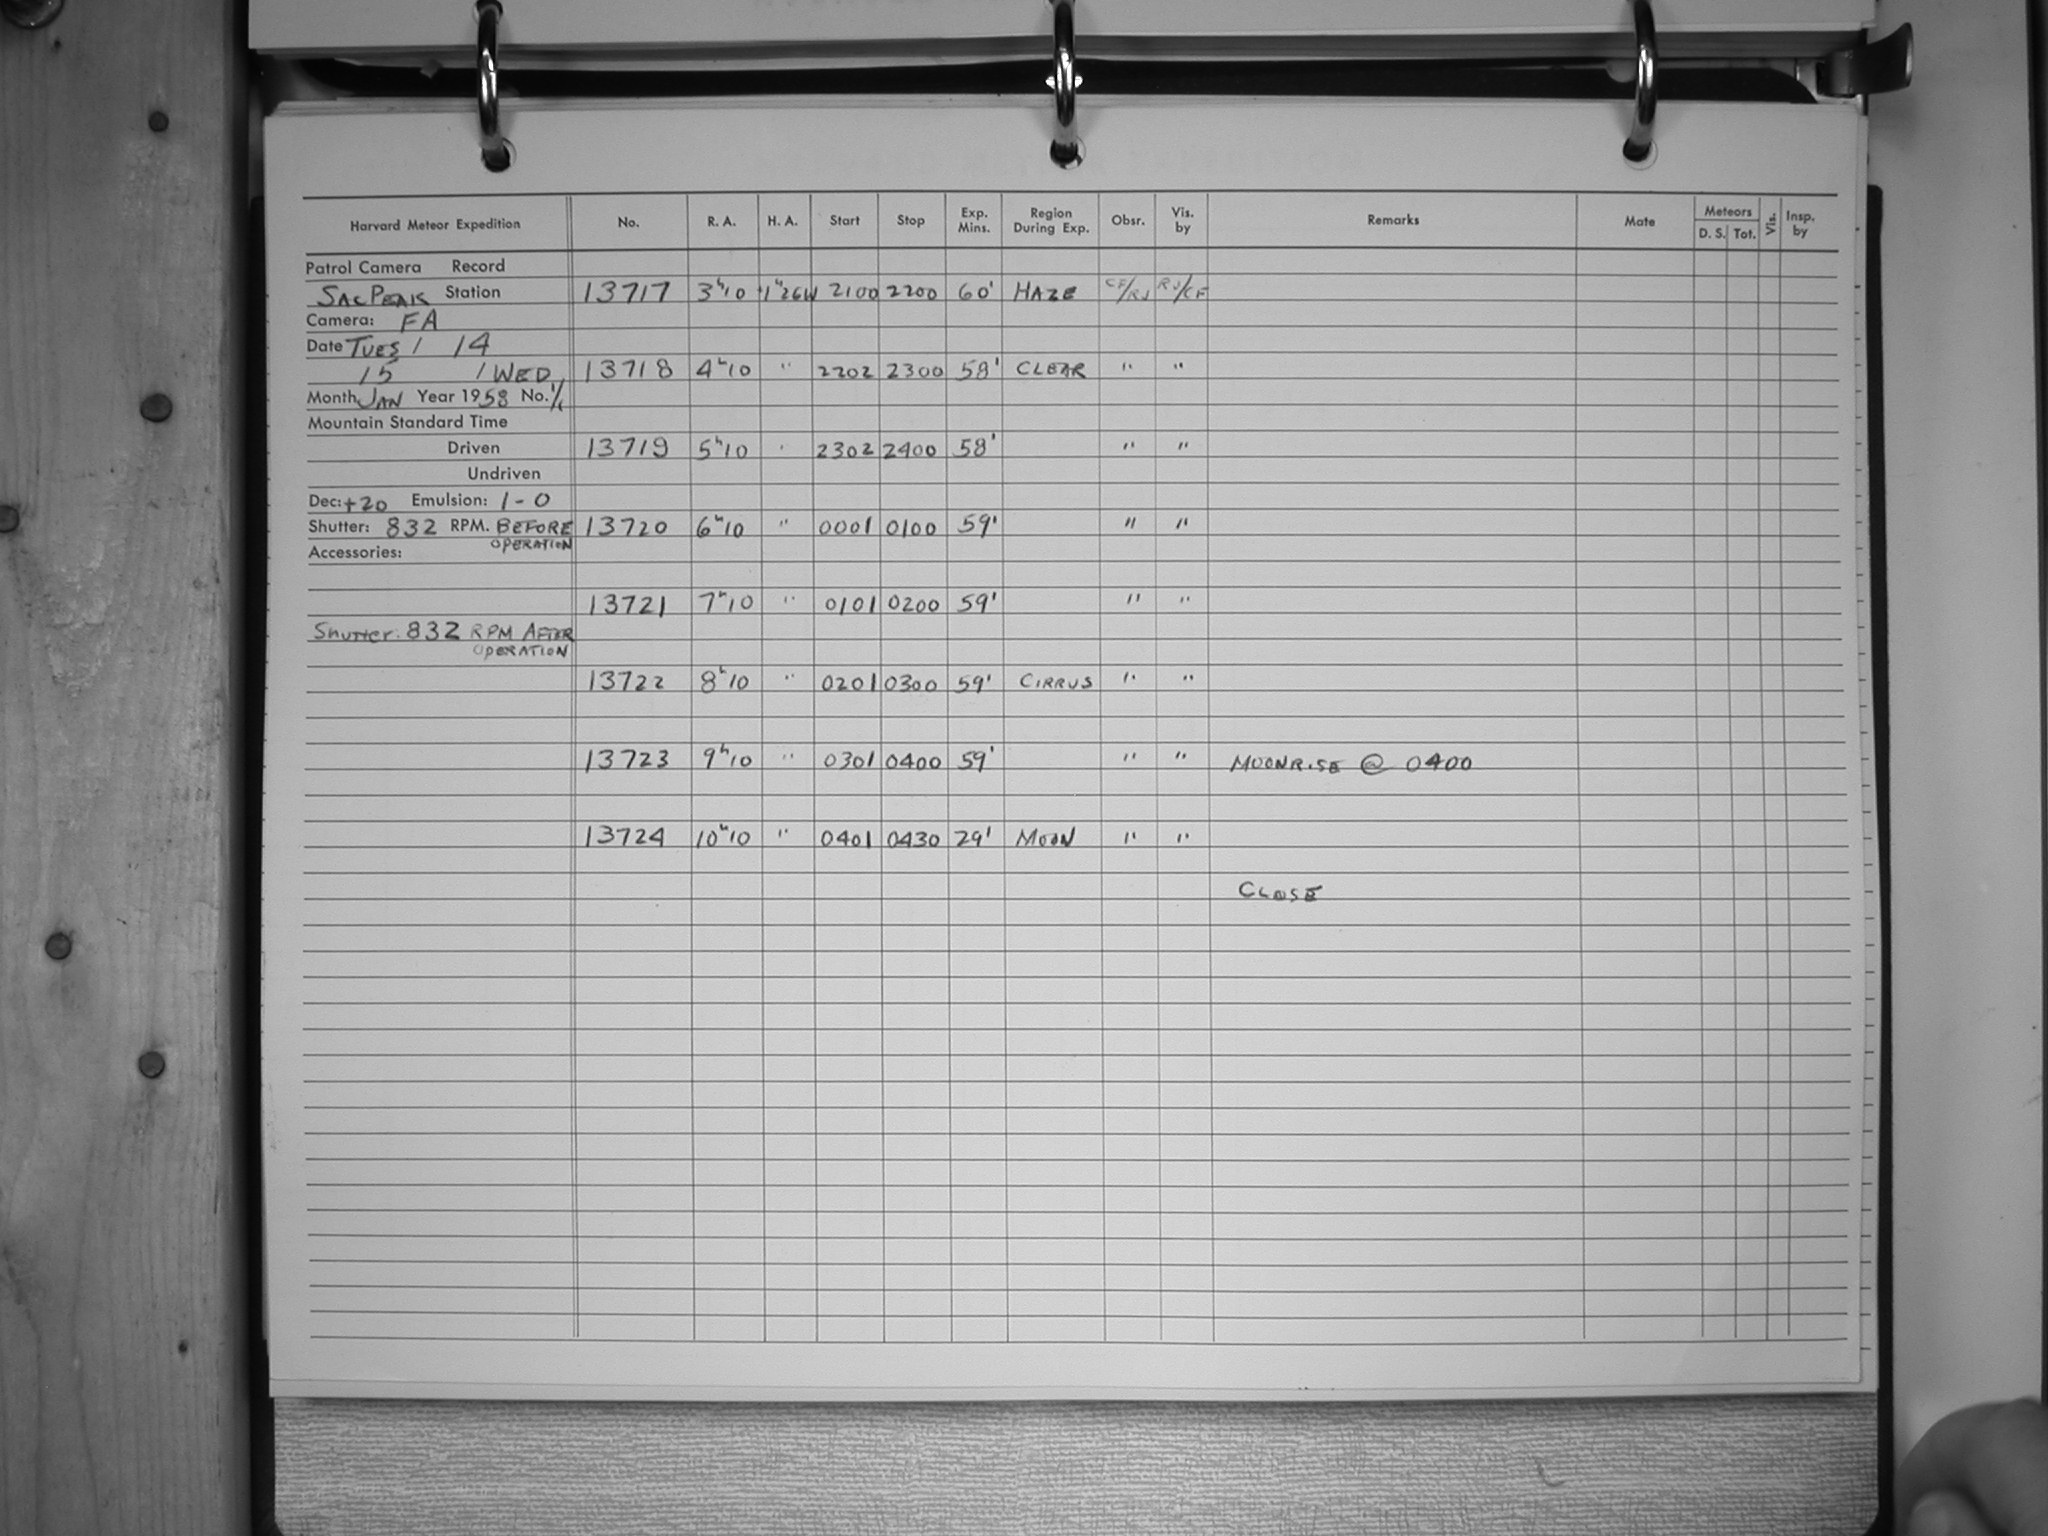 Harvard Meteor Expedition No. R. A. H. A. Start Stop Exp. Mins. Region During Exp. Obsr. Vis. by Remarks Mate Meteors D. S. Tot. Vis. Insp. by
Patrol Camera Record
SAC PEAK Station 13717 3ʰ10 1ʰ26W 2100 2200 60' HAZE CF/RJ RJ/CF
Camera: FA
Date TUES / 14
15 / WED, 13718 4ʰ10 " 2202 2300 58' CLEAR " "
Month JAN Year 1958 No. 1/1
Mountain Standard Time
Driven 13719 5ʰ10 " 2302 2400 58' " "
Undriven
Dec: +20 Emulsion: 1-0
Shutter: 832 RPM. BEFORE 13720 6ʰ10 " 0001 0100 59' " "
OPERATION
Accessories:
13721 7ʰ10 " 0101 0200 59' " "
Shutter: 832 RPM AFTER
OPERATION
13722 8ʰ10 " 0201 0300 59' CIRRUS " "
13723 9ʰ10 " 0301 0400 59' " " MOONRISE @ 0400
13724 10ʰ10 " 0401 0430 29' MOON " "
CLOSE